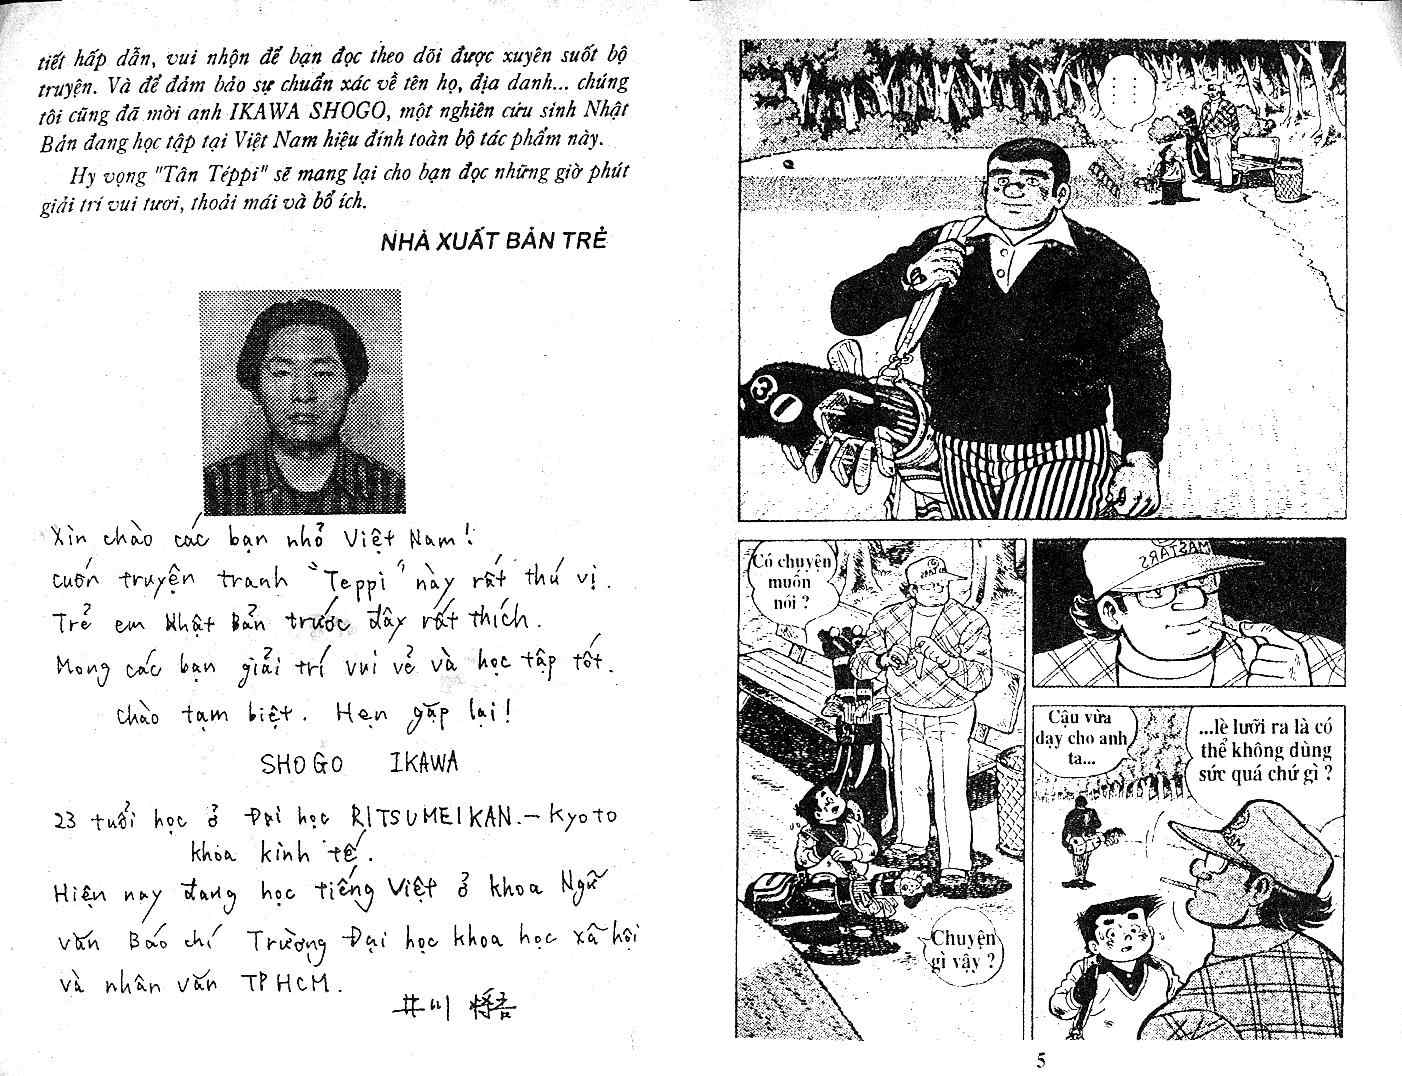 tiết hấp dẫn, vui nhộn để bạn đọc theo dõi được xuyên suốt bộ
truyện. Và để đảm bảo sự chuẩn xác về tên họ, địa danh... chúng
tôi cũng đã mời anh IKAWA SHOGO, một nghiên cứu sinh Nhật
Bản đang học tập tại Việt Nam hiệu đính toàn bộ tác phẩm này.
Hy vọng "Tân Téppi" sẽ mang lại cho bạn đọc những giờ phút
giải trí vui tươi, thoải mái và bổ ích.
NHÀ XUẤT BẢN TRẺ
Xin chào các bạn nhỏ Việt Nam!
cuốn truyện tranh "Teppi" này rất thú vị.
Trẻ em Nhật Bản trước đây rất thích.
Mong các bạn giải trí vui vẻ và học tập tốt.
chào tạm biệt. Hẹn gặp lại!
SHOGO IKAWA
23 tuổi học ở Đại học RITSUMEIKAN.- Kyoto
khoa kinh tế.
Hiện nay đang học tiếng Việt ở khoa Ngữ
văn Báo chí Trường Đại học khoa học xã hội
và nhân văn TP HCM.
井川 将吾
3
1
Có chuyện
muốn
nói ?
Chuyện
gì vậy ?
MASTARS
Cậu vừa
dạy cho anh
ta...
...lè lưỡi ra là có
thể không dùng
sức quá chứ gì ?
5